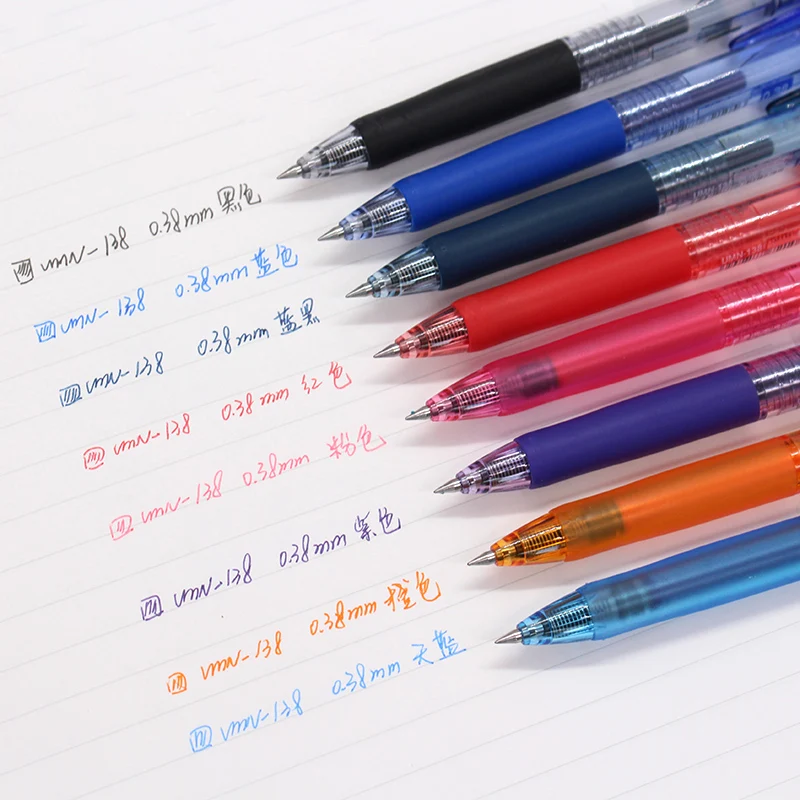 UMN-138 0.38mm 黑色
UMN-138 0.38mm 蓝色
UMN-138 0.38mm 蓝黑
UMN-138 0.38mm 红色
UMN-138 0.38mm 粉色
UMN-138 0.38mm 紫色
UMN-138 0.38mm 橙色
UMN-138 0.38mm 天蓝